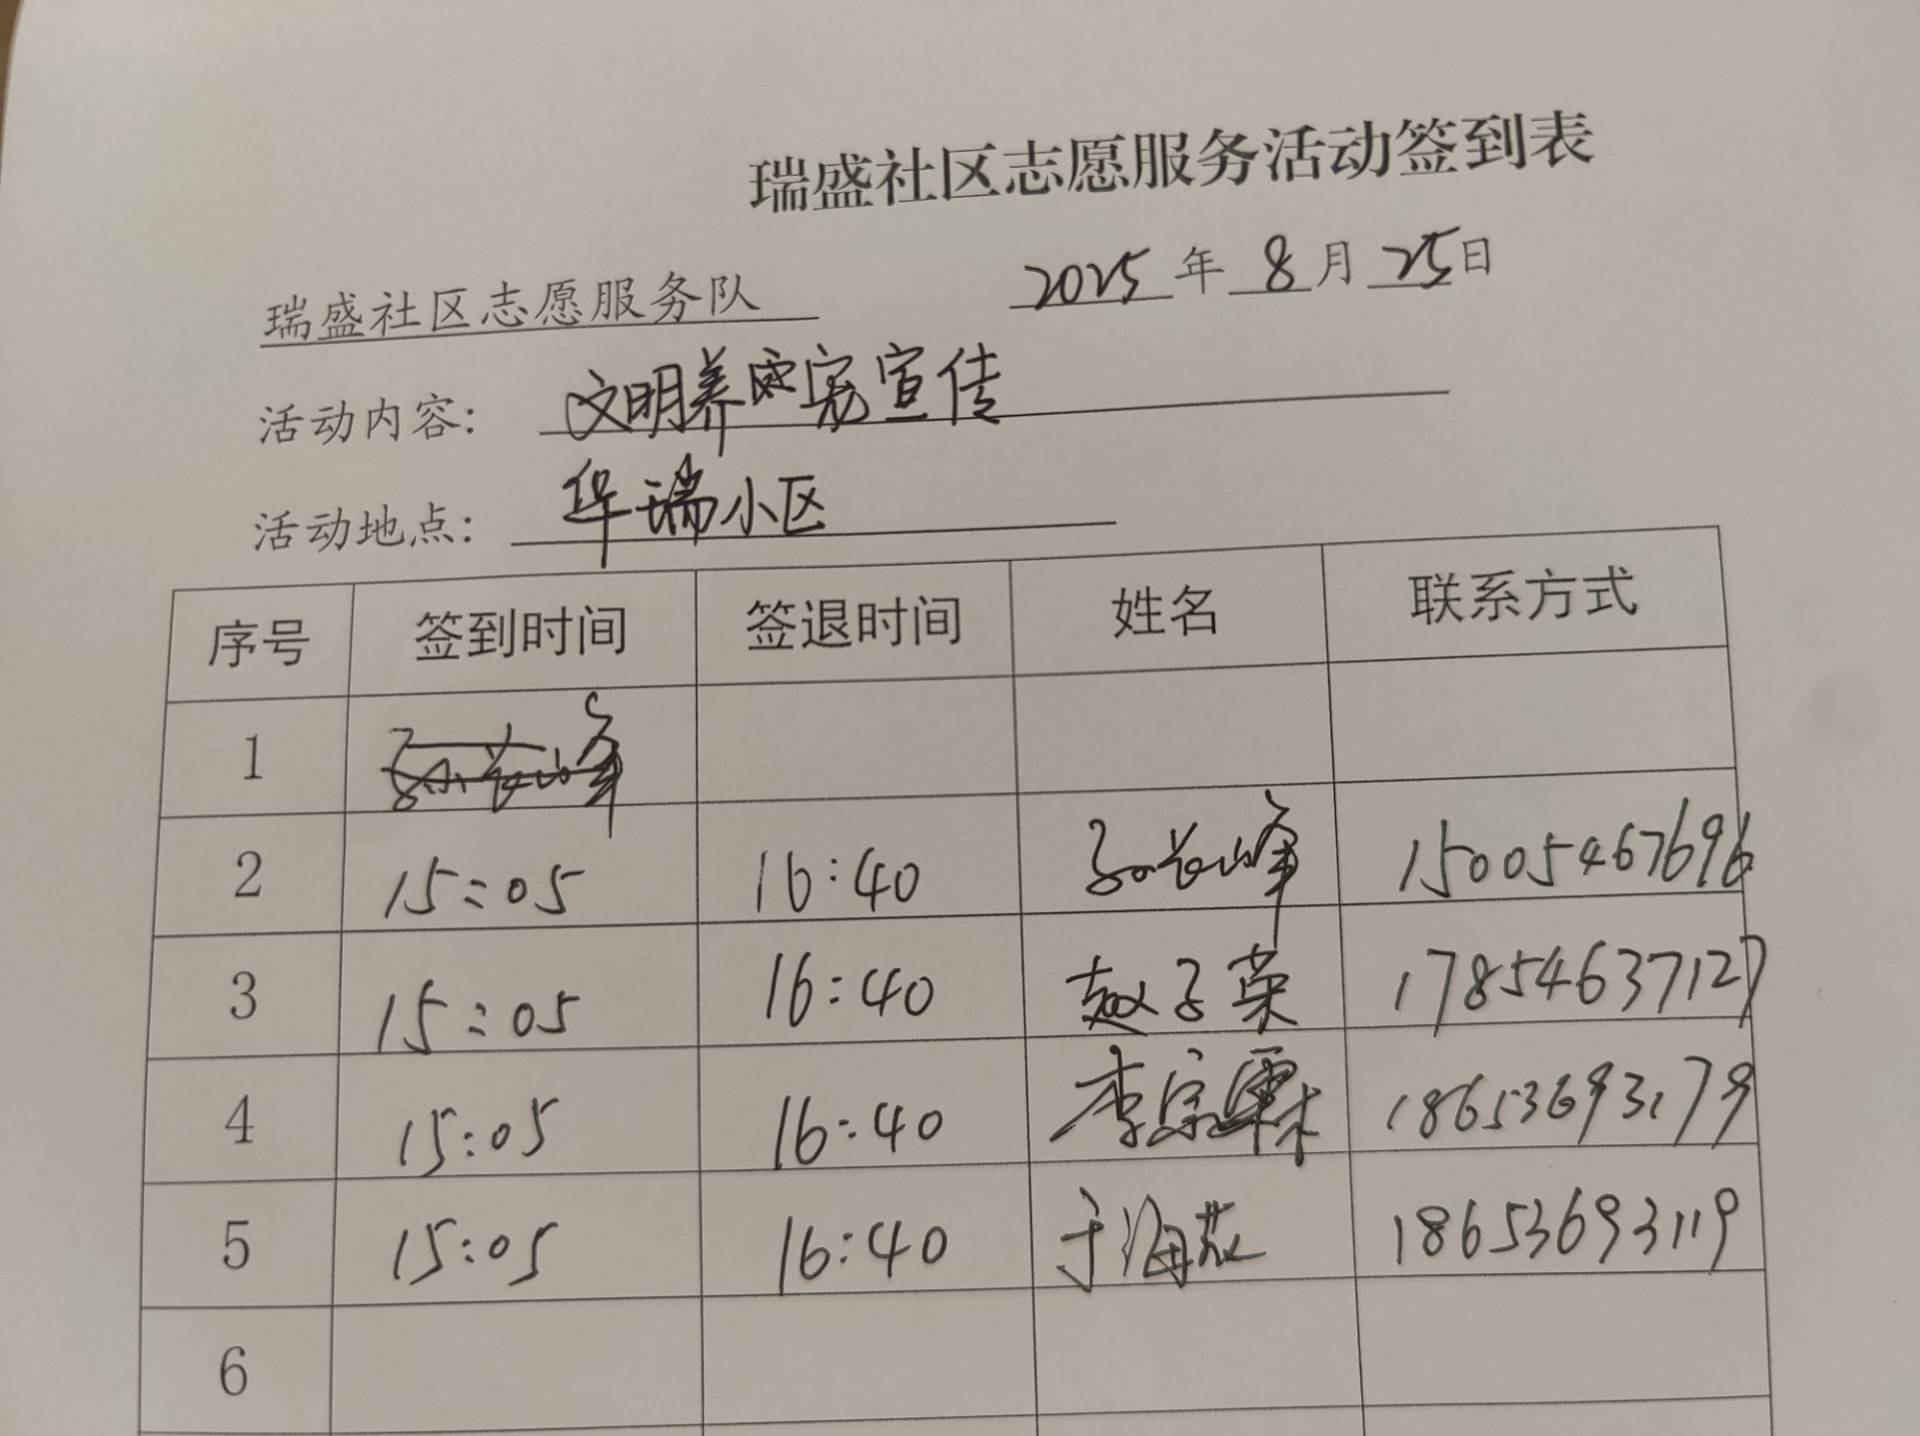 瑞盛社区志愿服务活动签到表
瑞盛社区志愿服务队 2025 年 8 月 25 日
活动内容: 文明养宠宣传
活动地点: 华瑞小区
序号 签到时间 签退时间 姓名 联系方式
1
2 15:05 16:40 孙长峰 15005467696
3 15:05 16:40 赵子荣 17854637127
4 15:05 16:40 李宗霖 18653693179
5 15:05 16:40 于海 18653693119
6